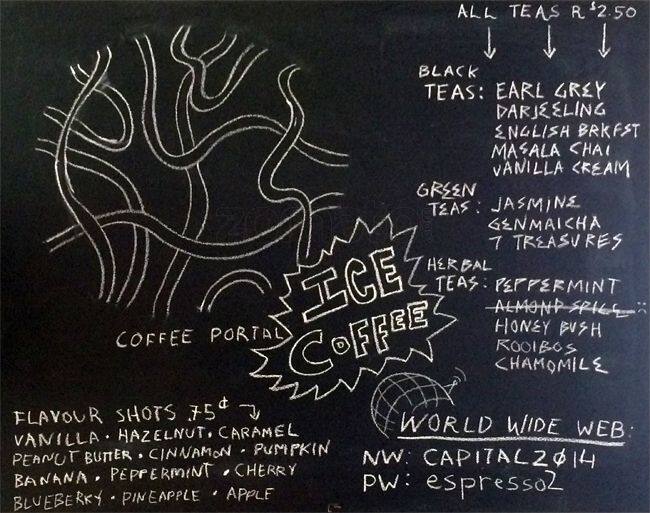 ALL TEAS R $2.50
BLACK
TEAS: EARL GREY
DARJEELING
ENGLISH BRKFST
MASALA CHAI
VANILLA CREAM
GREEN
TEAS: JASMINE
GENMAICHA
7 TREASURES
HERBAL
TEAS: PEPPERMINT
ALMOND SPICE :(
HONEY BUSH
ROOIBOS
CHAMOMILE
ICE
COFFEE
COFFEE PORTAL
FLAVOUR SHOTS 75¢
VANILLA · HAZELNUT · CARAMEL
PEANUT BUTTER · CINNAMON · PUMPKIN
BANANA · PEPPERMINT · CHERRY
BLUEBERRY · PINEAPPLE · APPLE
WORLD WIDE WEB:
NW: CAPITAL2014
PW: espresso2